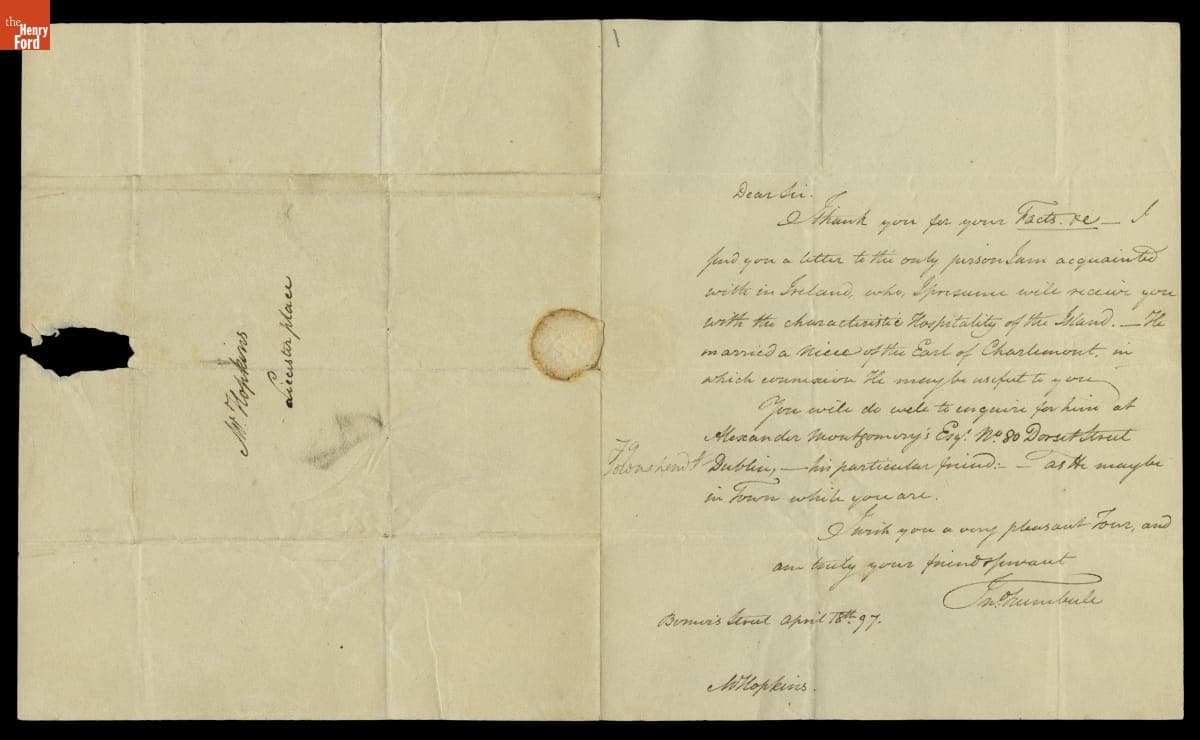 the
Henry
Ford
Mr. Hopkins
Leicester place
Dear Sir.
I Thank you for your Facts. &c — I
send you a letter to the only person I am acquainted
with in Ireland, who, I presume will receive you
with the characteristic Hospitality of the Island. — He
married a niece of the Earl of Charlemont, in
which connexion He may be useful to you
You will do well to enquire for him at
Alexander Montgomery's Esqr. No 80 Dorset Street
Dublin, — his particular friend: — as He may be
in Town while you are.
I wish you a very pleasant Tour, and
am truly your friend & servant
Jno. Trumbull
Berners Street April 18th. 97.
Mr Hopkins.